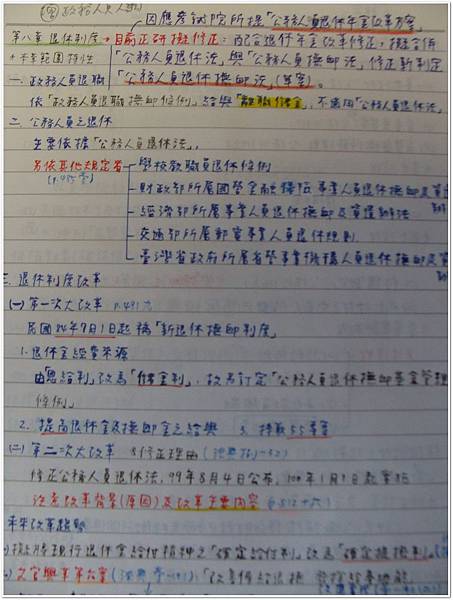 因應考試院所提「公務人員退休年金改革方案」
第八章 退休制度 → 目前正研擬修正:配合退休年金改革修正,擬合併
「公務人員退休法」與「公務人員撫卹法」修正新制定
「公務人員退休撫卹法」(草案)。
一、政務人員退職
依「政務人員退職撫卹條例」給與「離職儲金」,不適用「公務人員退休法」
二、公務人員之退休
主要依據「公務人員退休法」,
另依其他規定者 學校教職員退休條例
(p.485旁)
財政部所屬國營金融保險事業人員退休撫卹及資遣
辦
經濟部所屬事業人員退休撫卹及資遣辦法
交通部所屬郵電事業人員退休規則
臺灣省政府所屬省營事業機構人員退休撫卹及資
三、退休制度改革
(一) 第一次大改革 p.491
民國84年7月1日起稱「新退休撫卹制度」
1. 退休金經費來源
由「恩給制」改為「儲金制」,故另訂定「公務人員退休撫卹基金管理
條例」
2. 提高退休金及撫卹金之給與 3.
(二) 第二次大改革 修正理由
修正公務人員退休法,99年8月4日公布,100年1月1日起實施
注意改革背景(原因)及改革主要內容
未來改革趨勢
擬將現行退休金給付精神之「確定給付制」改為「確定提撥制」